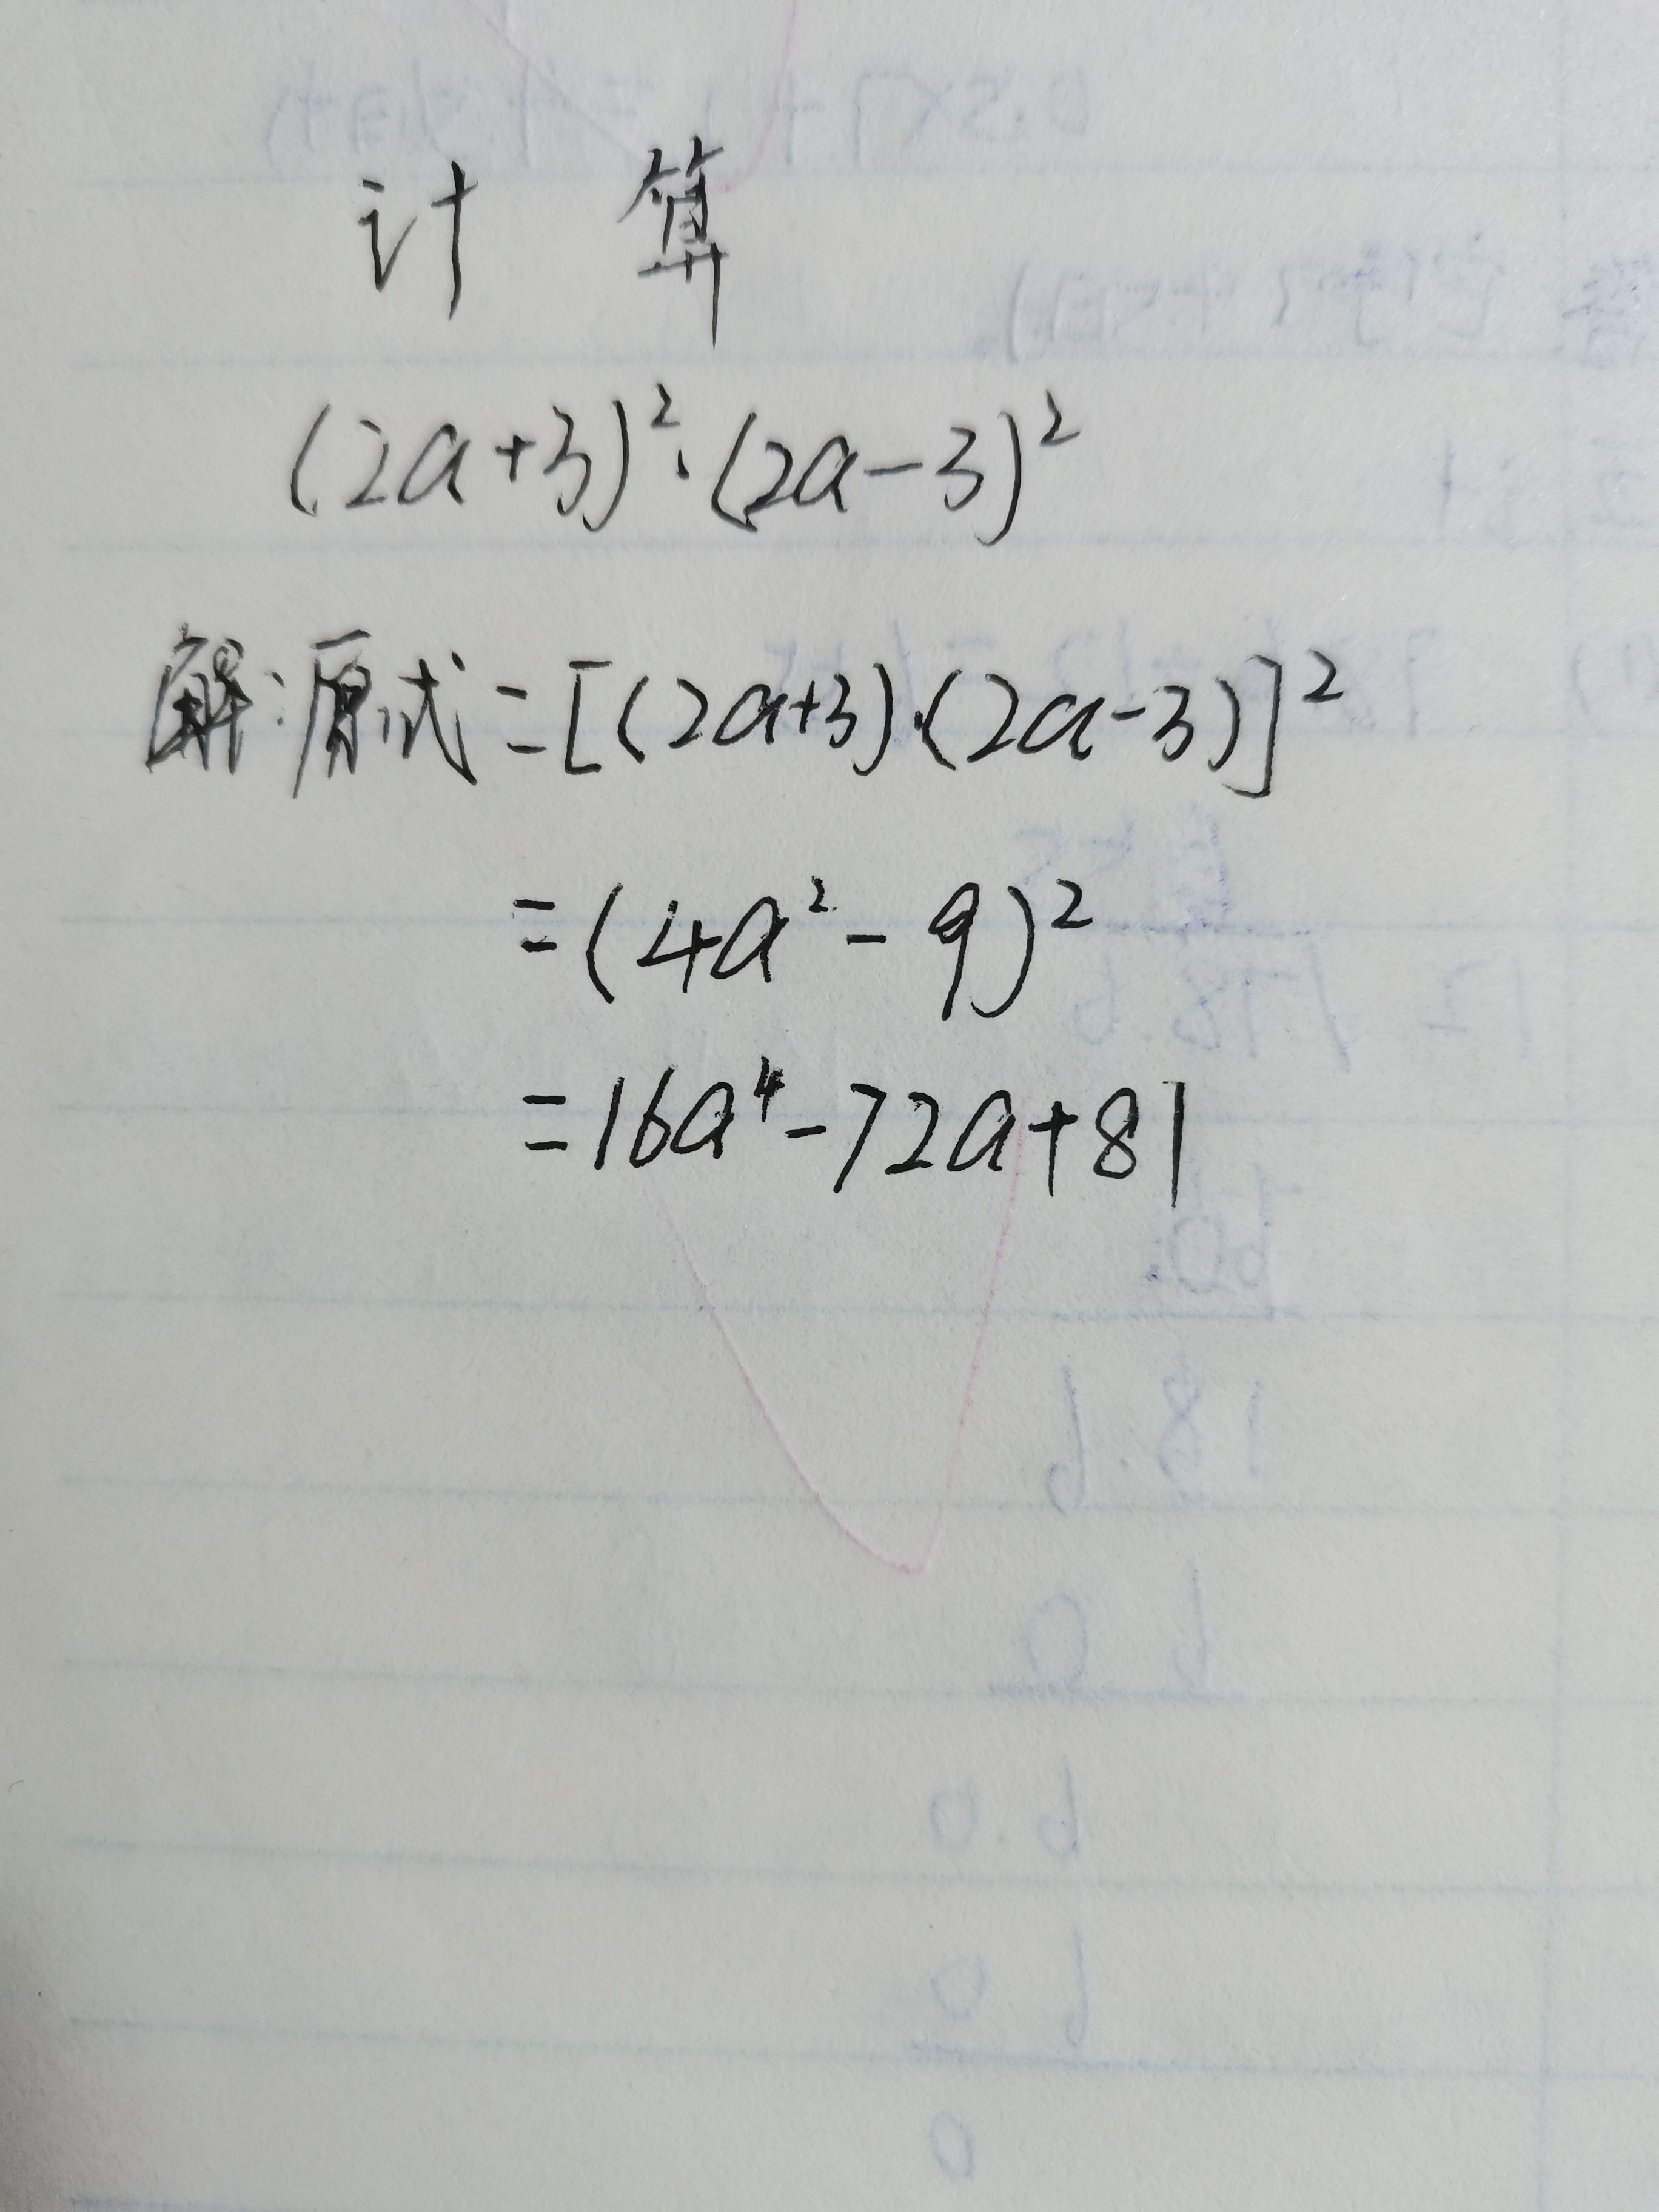 计 算
(2a+3)²·(2a-3)²
解:原式=[(2a+3)·(2a-3)]²
=(4a²-9)²
=16a⁴-72a+81